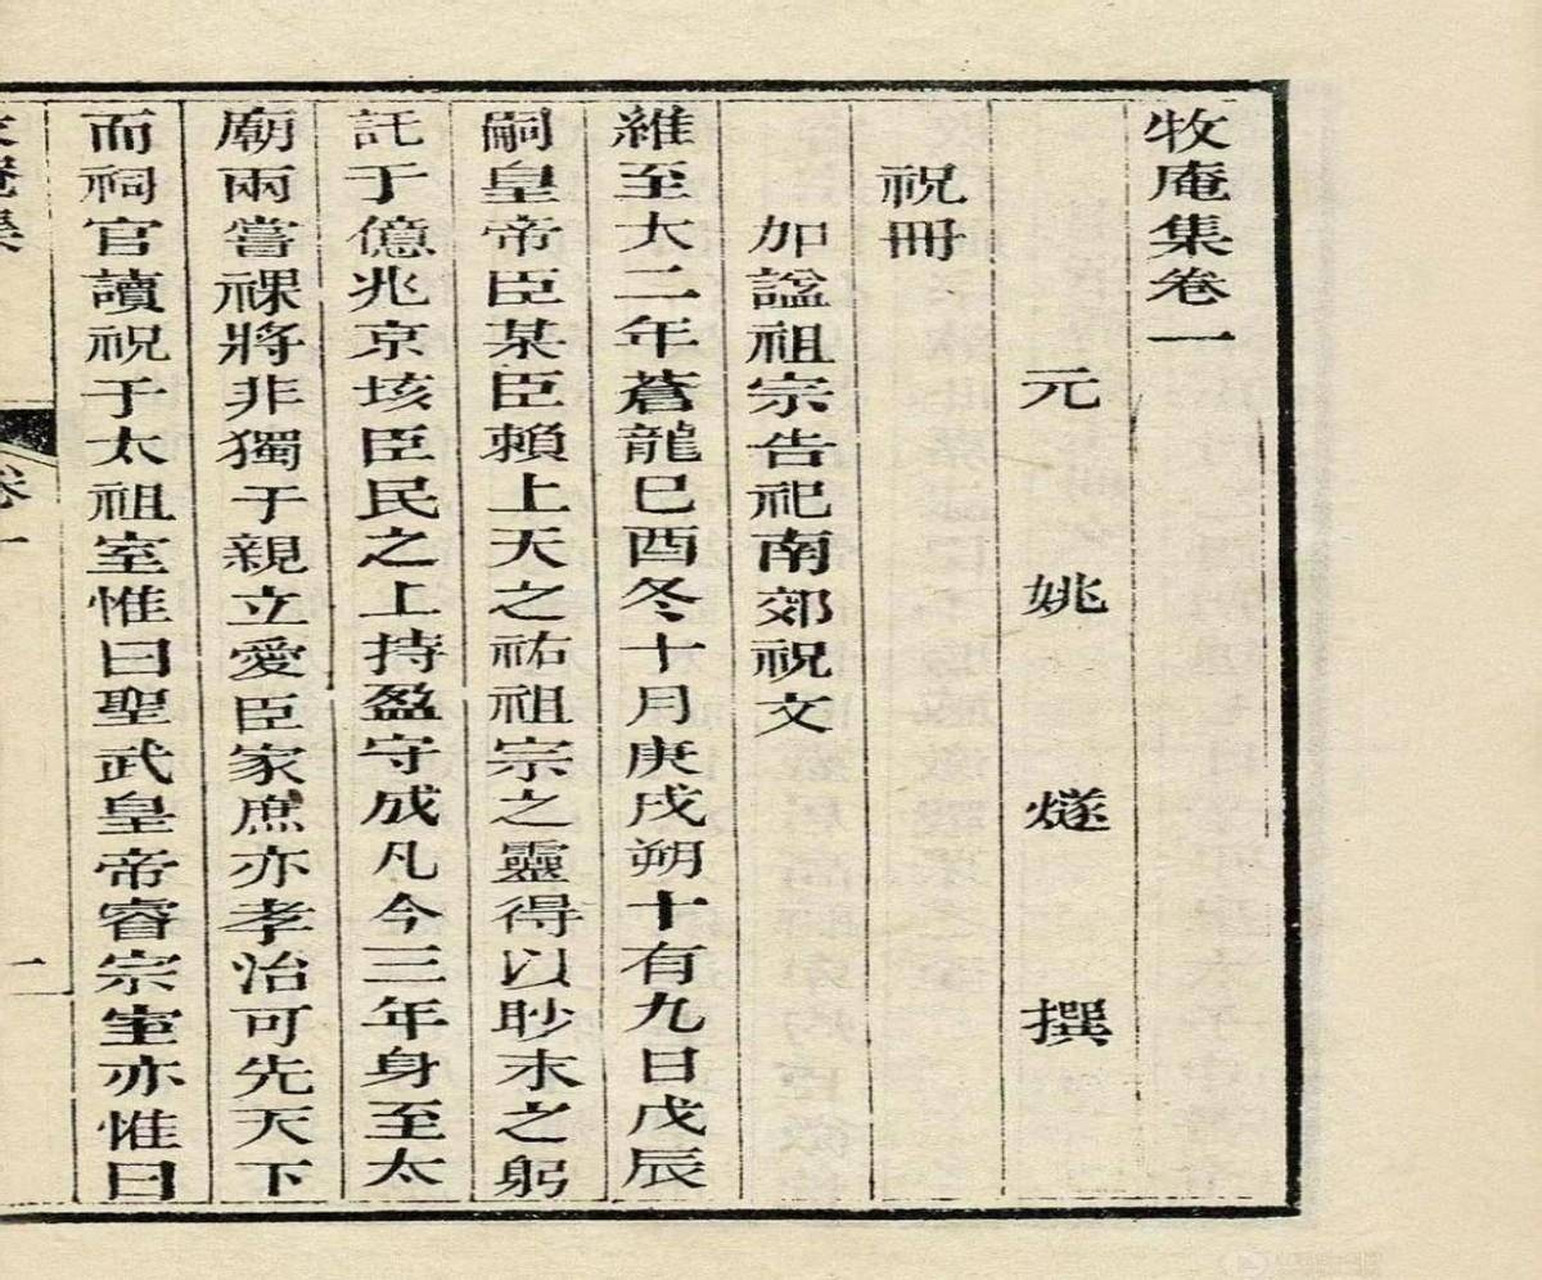 牧庵集卷一
元姚燧撰
祝冊
加諡祖宗告祀南郊祝文
維至大二年蒼龍巳酉冬十月庚戌朔十有九日戊辰
嗣皇帝臣某臣賴上天之祐祖宗之靈得以眇末之躬
託于億兆京垓臣民之上持盈守成凡今三年身至太
廟兩嘗祼將非獨于親立愛臣家庶亦孝治可先天下
而祠官讀祝于太祖室惟曰聖武皇帝睿宗室亦惟曰
卷一
二